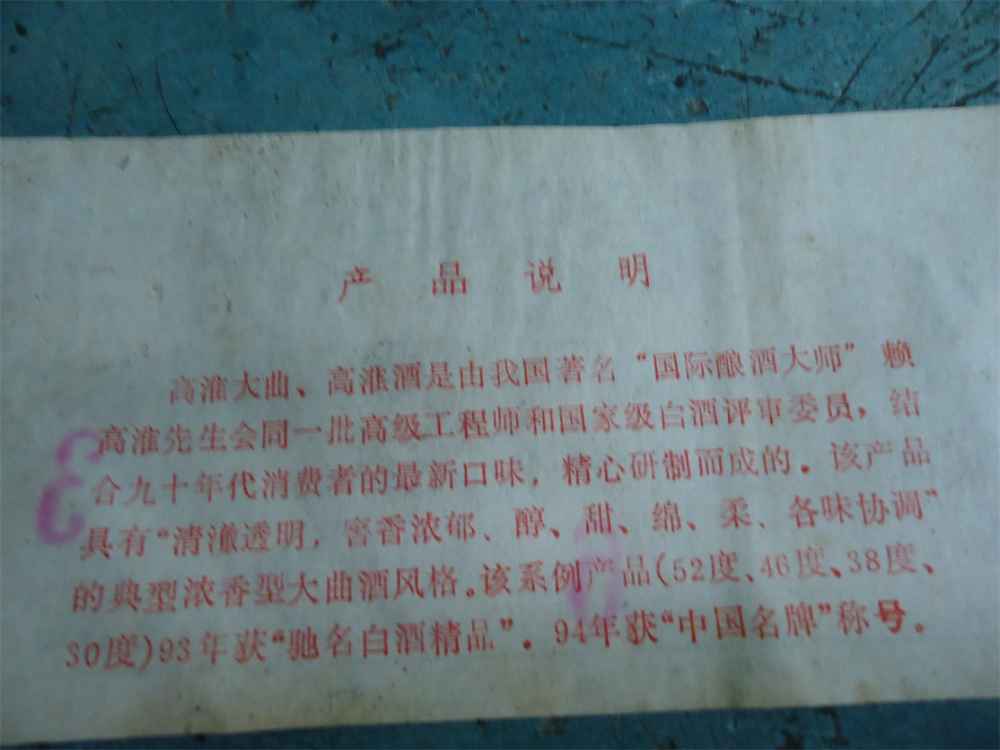 产品说明
高淮大曲、高淮酒是由我国著名“国际酿酒大师”赖
高淮先生会同一批高级工程师和国家级白酒评审委员，结
合九十年代消费者的最新口味，精心研制而成的。该产品
具有“清澈透明，窖香浓郁、醇、甜、绵、柔、各味协调”
的典型浓香型大曲酒风格。该系例产品(52度、46度、38度、
30度)93年获“驰名白酒精品”．94年获“中国名牌”称号。
3